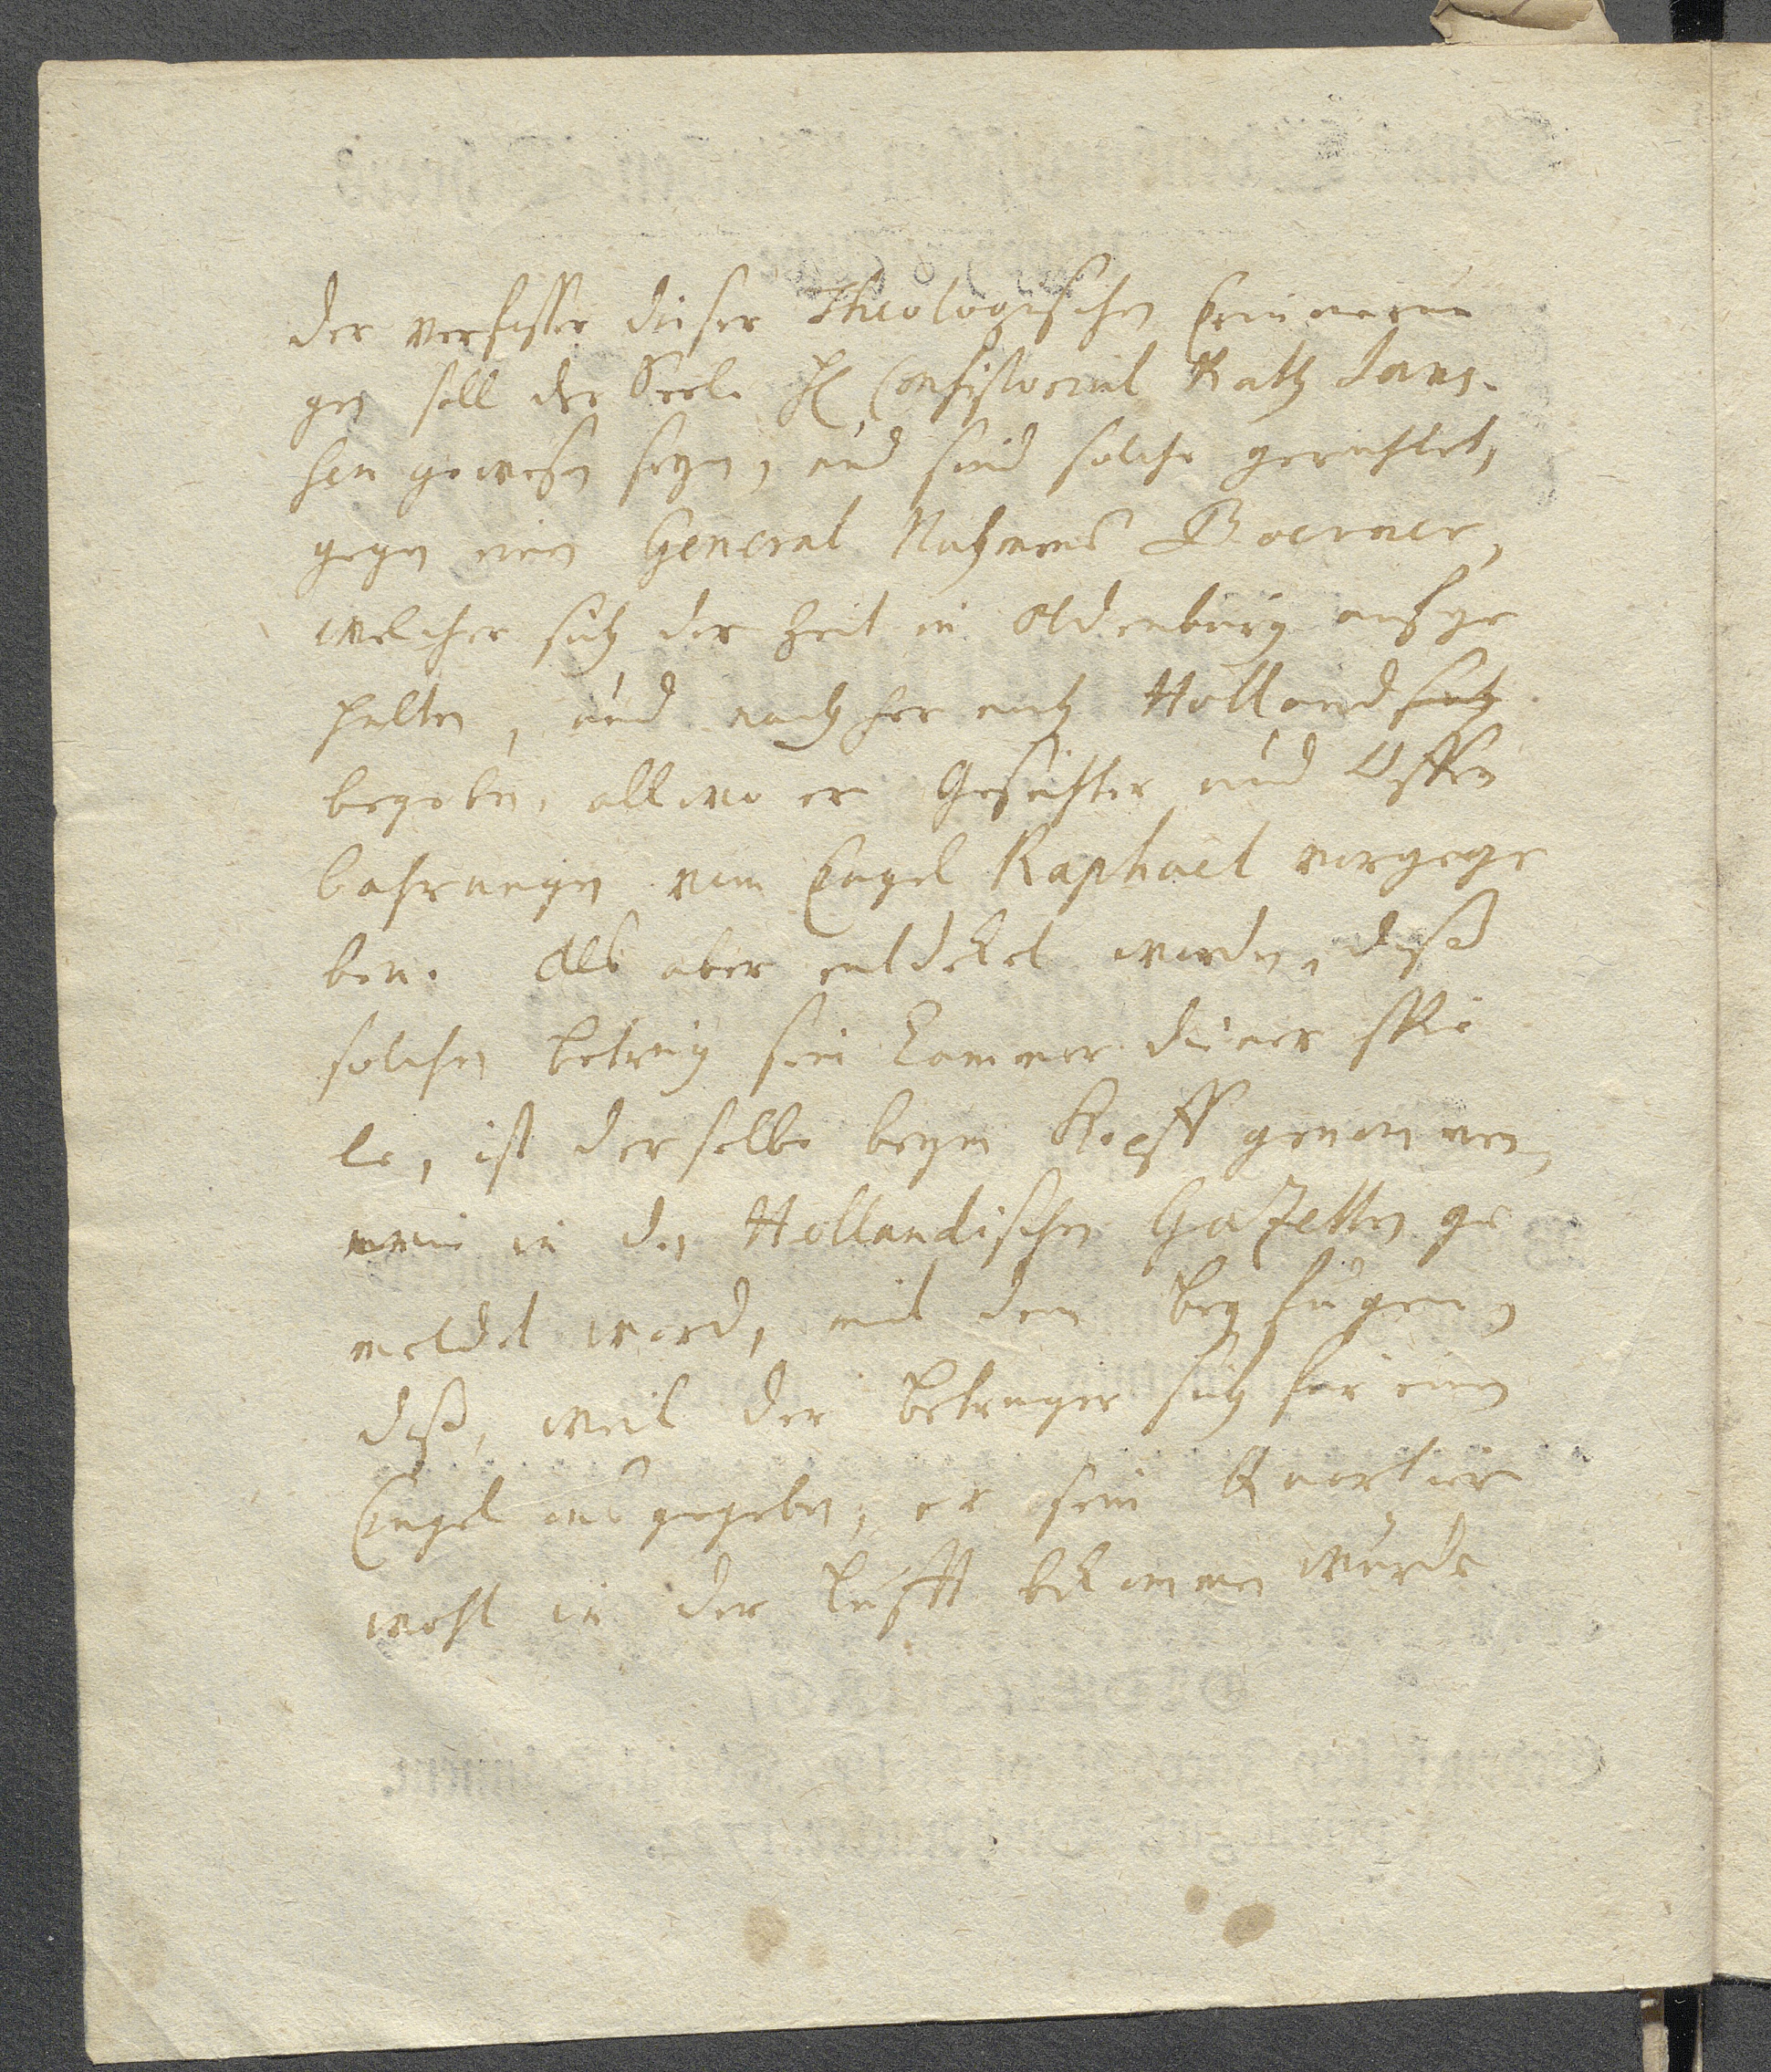 der verfasser dieser Theologischen Erinnerun
gen soll der Seel. H Consistorial Rath Jans-
sen gewesen seyn, und sind solche gerichtet,
gegen einen General Nahmens Boerner,
welcher sich der Zeit in Oldenburg aufge
halten, und nachher nach Holland sich
begeben, allwo er Gesichter und Offen
bahrungen vom Engel Raphael vorgege
ben. Als aber entdeket worden, daß
solchen betrug sein Cammerdiener spie
le, ist derselbe beym Kopff genommen,
wie in den Hollandischen Gazetten ge
meldet ward, mit dem beyfügen,
daß, weil der betrüger sich für einen
Engel ausgegeben, er sein Quartier
wohl in der Lufft bekommen würde